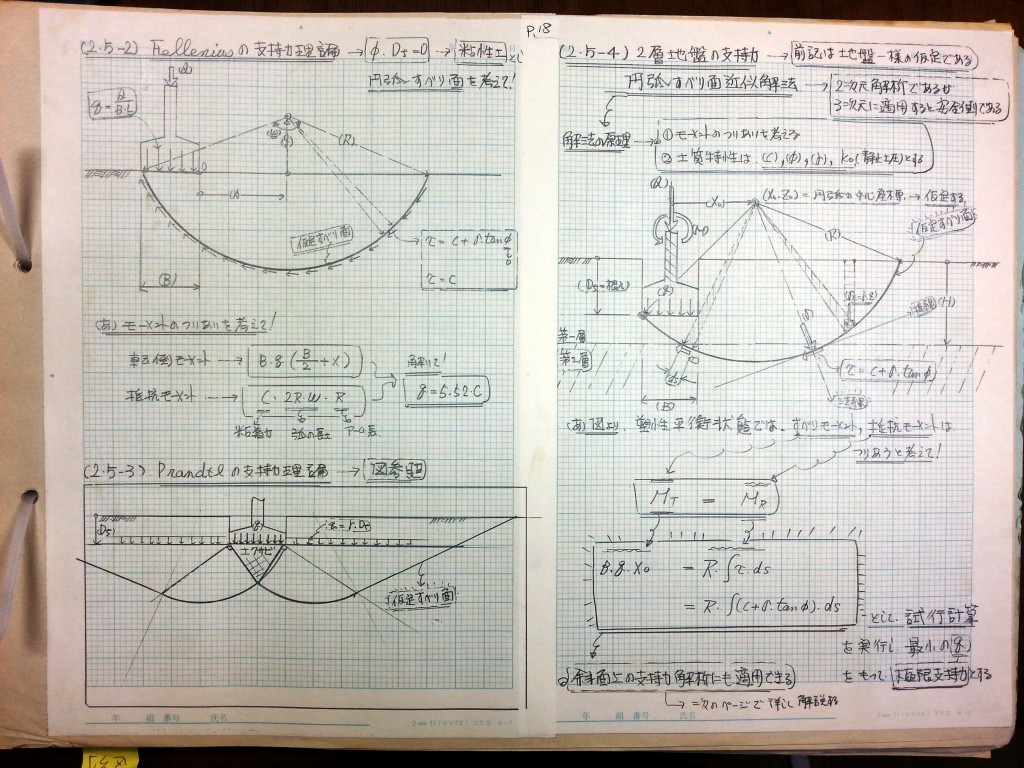 P.18
(2.5-2) Felleniusの支持力理論 → φ.Df=0 → 粘性土とし
円弧すべり面を考えて!
(Q)
q=Q/B.L
(R)
(X)
仮定すべり面
τ=c+σ.tanφ
0
τ=c
(B)
(あ) モーメントのつりあいを考えて!
転倒モーメント → B.q(B/2+X)
解いて!
q=5.52.C
抵抗モーメント → C.2R.ω.R
粘着力 弧の長さ アーム長
(2.5-3) Prandtlの支持力理論 → 図参照
(Df)
(q)
q=r.Df
土クサビ
仮定すべり面
年 組 番号 氏名
(2.5-4) 2層地盤の支持力 → 前記は地盤一様の仮定である
円弧すべり面近似解法 → 2次元解析であるが
3次元に適用すると安全側である
解法の原理 → ①モーメントのつりあいを考える
②土質特性は、(c),(φ),(r), K0(静止土圧)とする
(Q)
(X0)
(X0.Z0)=円弧の中心座標、→仮定する
仮定すべり面
(R)
(Df=根入)
(q)
(H)
第一層
第二層
τ=c+σ.tanφ
(B)
(あ) 図より、塑性平衡状態では、すべりモーメント, 抵抗モーメントは
つりあうと考えて!
MT = MR
B.q.X0 = R.∫τ.ds
= R.∫(c+σ.tanφ).ds
として、試行計算
を実行し 最小の(q)
をもって 極限支持力とする
斜面上の支持力解析にも適用できる
→ 次のページで詳しく解説する
年 組 番号 氏名